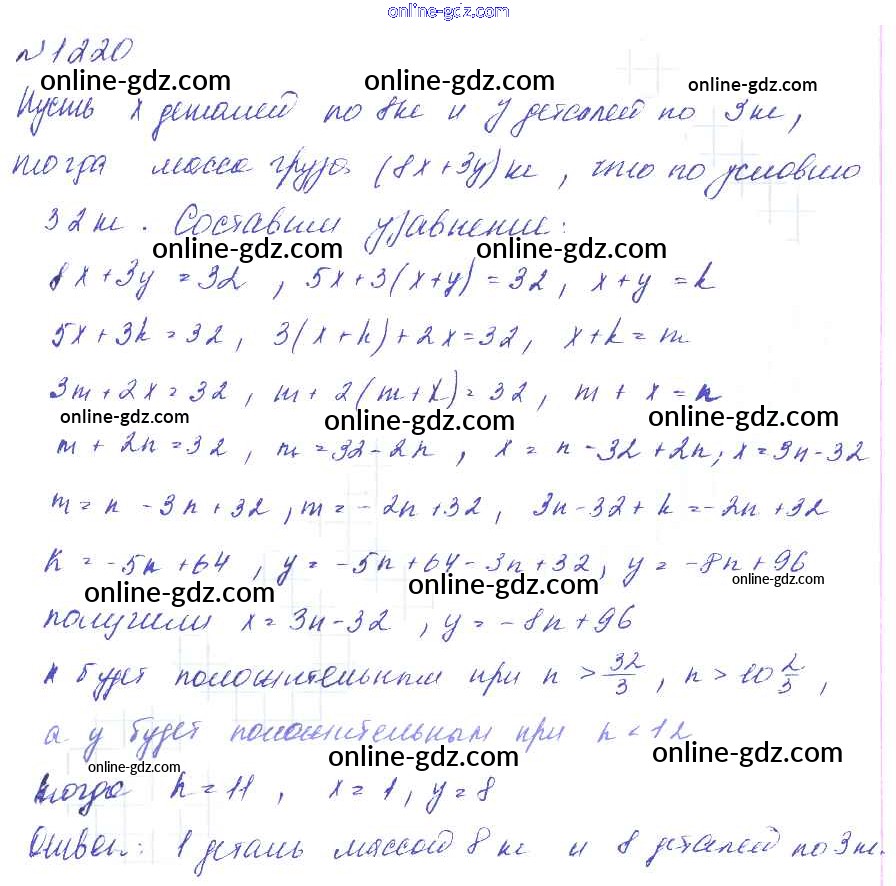 online-gdz.com
№1220
online-gdz.com online-gdz.com online-gdz.com
Пусть x деталей по 8кг и y деталей по 3кг,
тогда масса груза (8x+3y)кг, что по условию
32кг. Составим уравнение:
online-gdz.com online-gdz.com
8x+3y=32, 5x+3(x+y)=32, x+y=k
5x+3k=32, 3(x+k)+2x=32, x+k=m
3m+2x=32, m+2(m+x)=32, m+x=n
online-gdz.com online-gdz.com online-gdz.com
m+2n=32, m=32-2n, x=n-32+2n; x=3n-32
m=n-3n+32, m=-2n+32, 3n-32+k=-2n+32
k=-5n+64, y=-5n+64-3n+32, y=-8n+96
online-gdz.com online-gdz.com online-gdz.com
получили x=3n-32, y=-8n+96
x будет положительным при n>32/3, n>10 2/3,
а y будет положительным при n<12
online-gdz.com online-gdz.com online-gdz.com
тогда n=11, x=1, y=8
Ответ: 1 деталь массой 8кг и 8 деталей по 3кг.
online-gdz.com online-gdz.com online-gdz.com